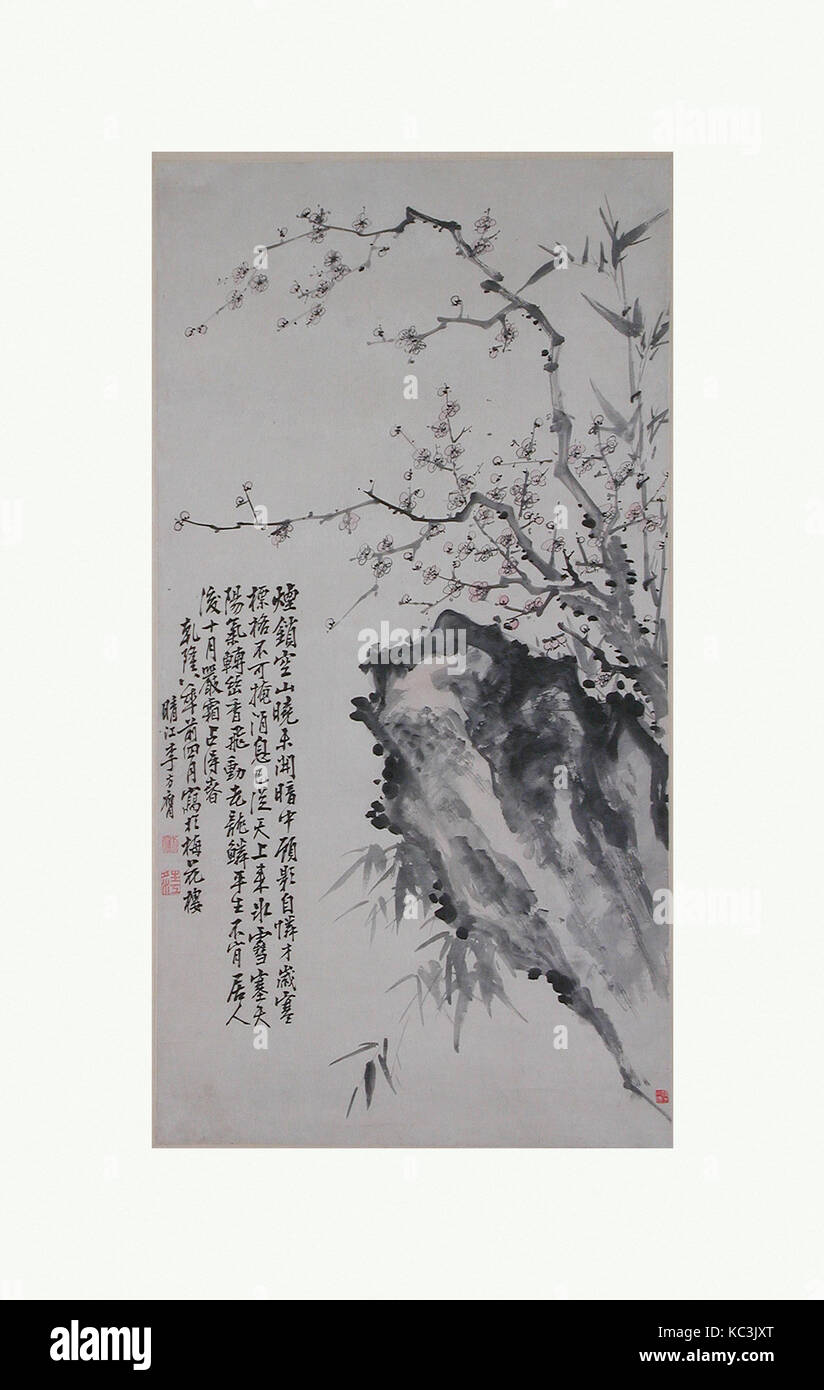 煙鎖空山曉未開暗中顧影自憐才歲寒
標格不可掩消息已從天上來冰雪塞矢
陽氣轉絃香飛動老龍鱗平生不肯居人
後十月嚴霜占得春
乾隆八年前四月寫於梅花樓
晴江李方膺
alamy
Image ID: KC3JXT
www.alamy.com